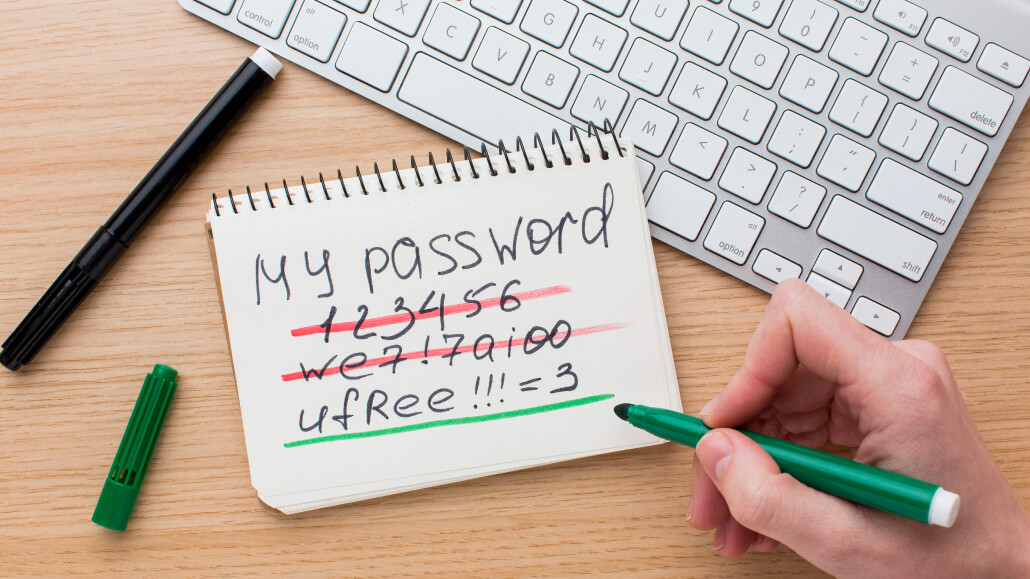 control
alt
option
X
C
V
G
B
H
N
U
J
M
I
K
<
,
9
)
0
O
L
>
.
P
:
;
?
/
_
-
{
[
"
'
+
=
}
]
|
\
F11
F12
delete
enter
return
shift
alt
option
My password
123456
we7!7aioo
ufRee!!!=3